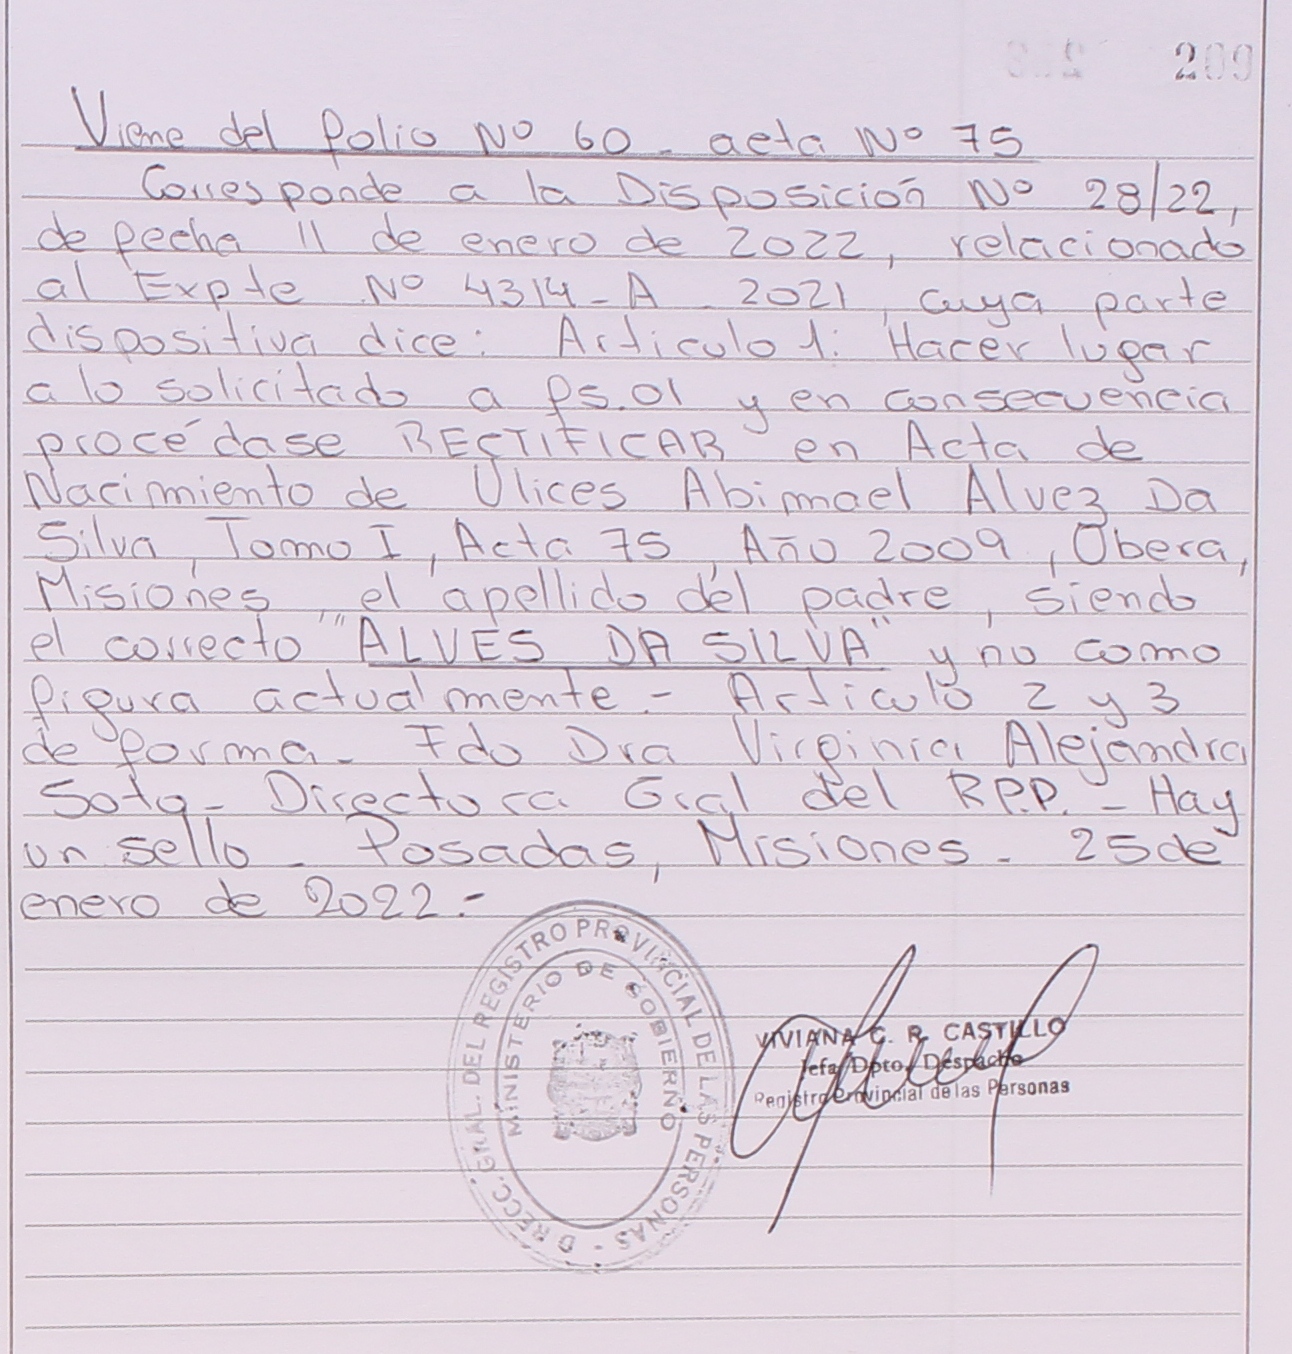 209
Viene del folio Nº 60 - acta Nº 75
Corresponde a la Disposición Nº 28/22,
de fecha 11 de enero de 2022, relacionado
al Expte Nº 4314-A-2021, cuya parte
dispositiva dice: Articulo 1: Hacer lugar
a lo solicitado a fs.01 y en consecuencia
procédase RECTIFICAR en Acta de
Nacimiento de Ulices Abimael Alvez Da
Silva, Tomo I, Acta 75, Año 2009, Obera,
Misiones, el apellido del padre, siendo
el correcto "ALVES DA SILVA" y no como
figura actualmente.- Articulo 2 y 3
de forma- Fdo Dra Virginia Alejandra
Soto- Directora Gral del R.P.P. - Hay
un sello - Posadas, Misiones - 25 de
enero de 2022.-
DIRECC. GRAL. DEL REGISTRO PROVINCIAL DE LAS PERSONAS -
MINISTERIO DE GOBIERNO
VIVIANA C. R. CASTILLO
Jefa Dpto. Despacho
Registro Provincial de las Personas